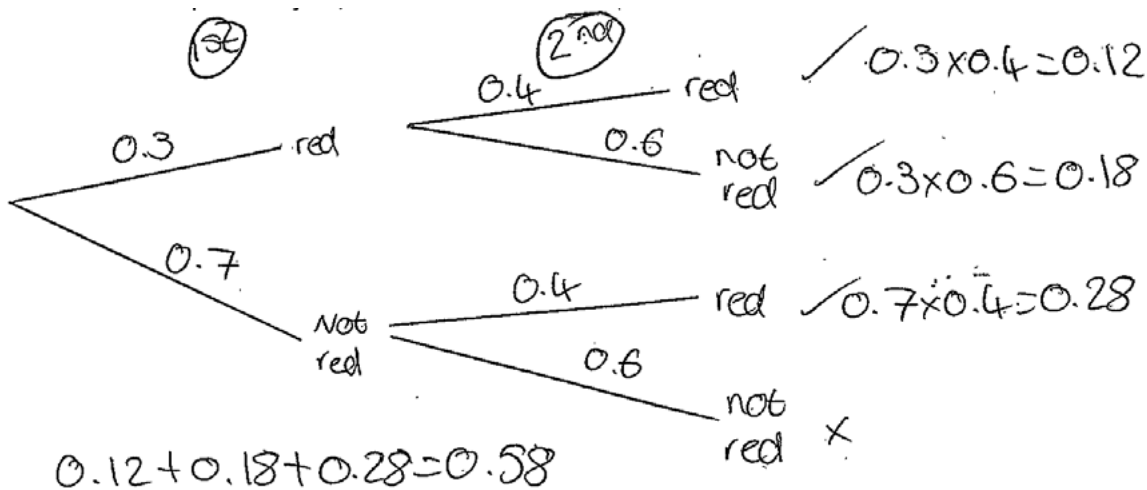 1st
2nd
0.4
red
✓ 0.3×0.4=0.12
0.3
red
0.6
not
red
✓ 0.3×0.6=0.18
0.7
Not
red
0.4
red
✓ 0.7×0.4=0.28
0.6
not
red
×
0.12+0.18+0.28=0.58